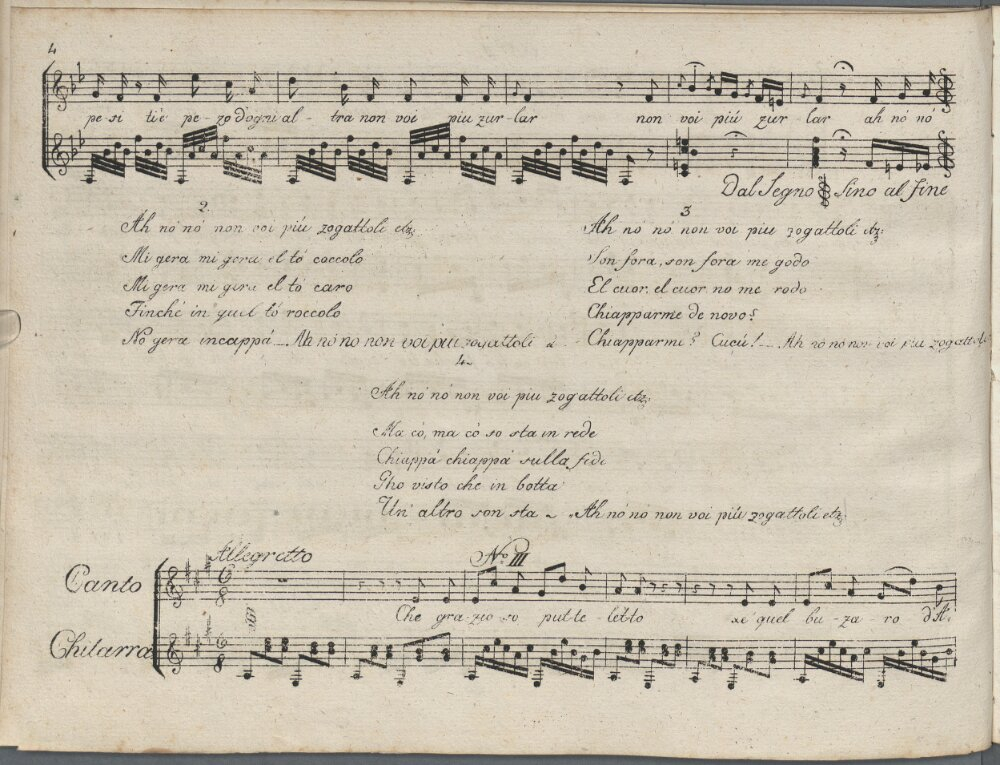 4
pe-si tie pe-zo d'ogni al-tra non voi piu zur-lar non voi piú zur-lar ah nó nó
Dal Segno Sino al fine
2.
Ah nó nó non voi piú zogattoli etz.
Mi gera mi gera el tó coccolo
Mi gera mi gera el tó caro
Finché in quel tó roccolo
No gera incappá _ Ah nó no non voi piu zogattoli
3
Ah no nó non voi piu zogattoli etz:
Son fora, son fora me godo
El cuor, el cuor no me rodo
Chiapparme de novo?
Chiapparmi? Cucú! _ Ah nó nó non voi piu zogattoli
4
Ah nó nó non voi piu zogattoli etz.
Ma có, ma có so sta in rede
Chiappá chiappá sulla fede
Gho visto che in botta
Un' altro son sta _ Ah nó nó non voi piú zogattoli etz
Allegretto No. III
Canto
Che gra-zio-so put-te-letto xé quel bu-za-ro d'A-
Chitarra